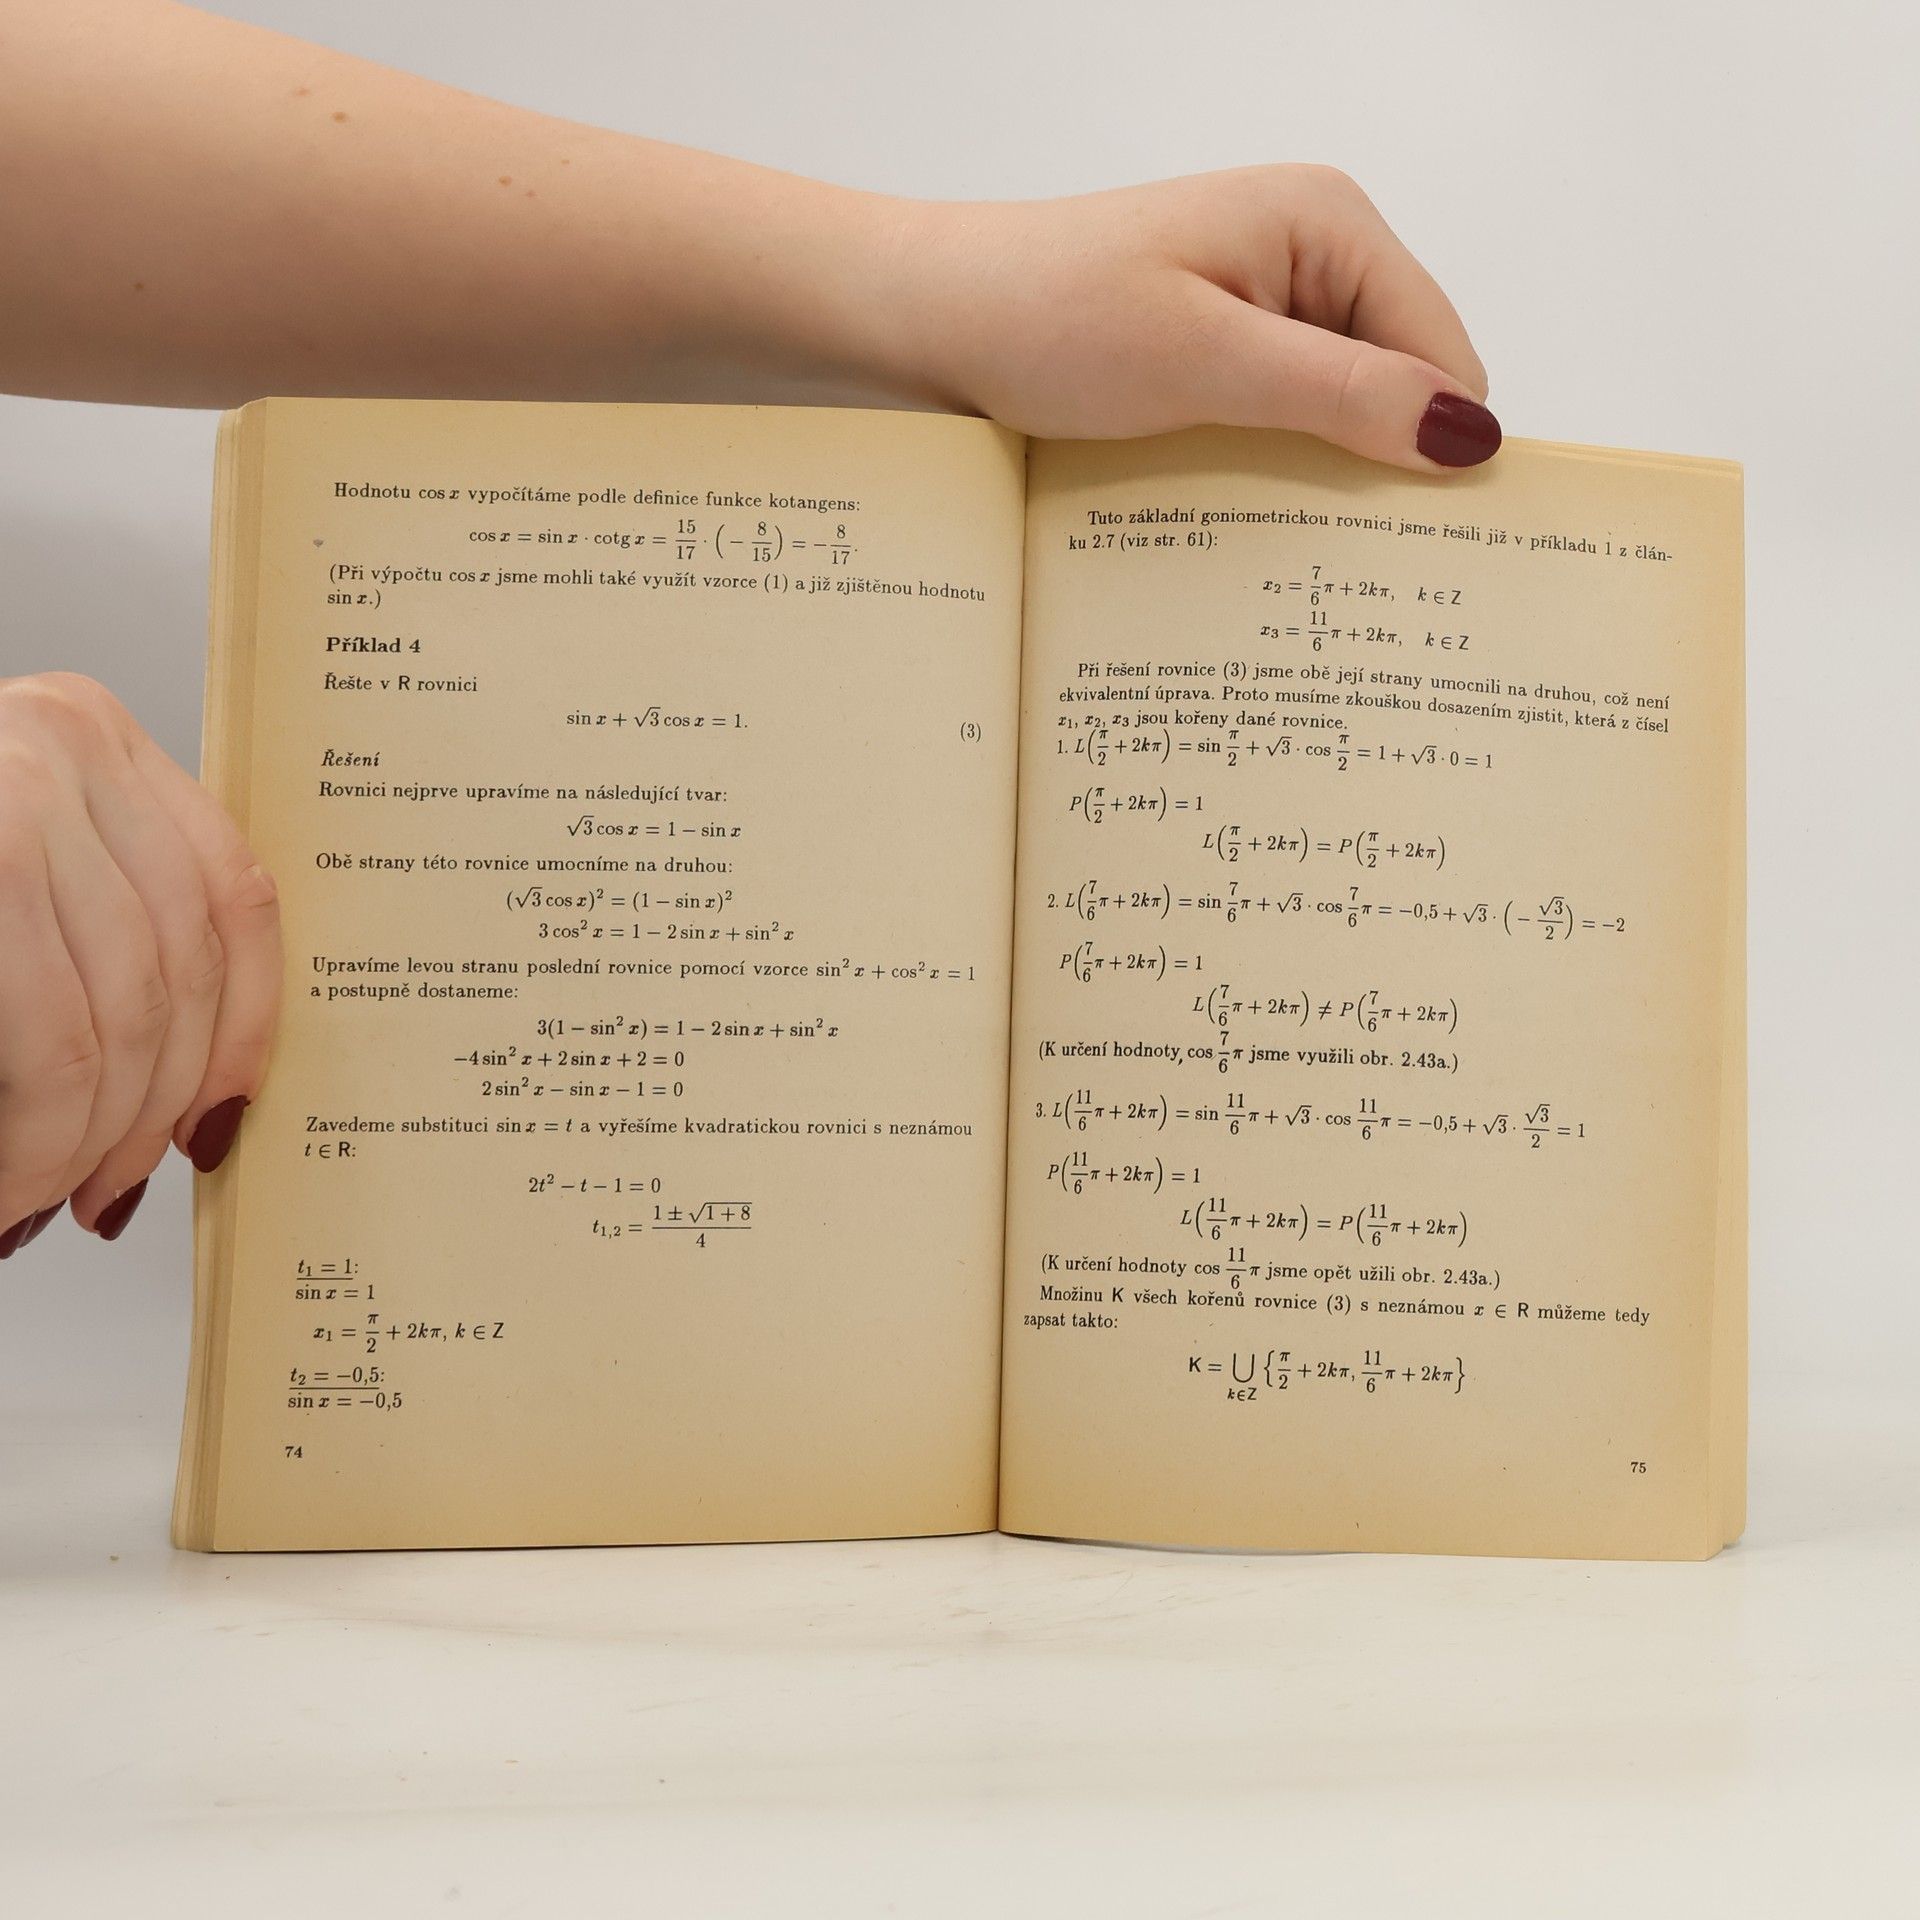 Hodnotu cos x vypočítáme podle definice funkce kotangens:
cos x = sin x · cotg x = 15/17 · (− 8/15) = − 8/17.
(Při výpočtu cos x jsme mohli také využít vzorce (1) a již zjištěnou hodnotu
sin x.)
Příklad 4
Řešte v R rovnici
sin x + √3 cos x = 1. (3)
Řešení
Rovnici nejprve upravíme na následující tvar:
√3 cos x = 1 − sin x
Obě strany této rovnice umocníme na druhou:
(√3 cos x)² = (1 − sin x)²
3 cos² x = 1 − 2 sin x + sin² x
Upravíme levou stranu poslední rovnice pomocí vzorce sin² x + cos² x = 1
a postupně dostaneme:
3(1 − sin² x) = 1 − 2 sin x + sin² x
−4 sin² x + 2 sin x + 2 = 0
2 sin² x − sin x − 1 = 0
Zavedeme substituci sin x = t a vyřešíme kvadratickou rovnici s neznámou
t ∈ R:
2t² − t − 1 = 0
t₁,₂ = (1 ± √(1 + 8))/4
t₁ = 1:
sin x = 1
x₁ = π/2 + 2kπ, k ∈ Z
t₂ = −0,5:
sin x = −0,5
74
Tuto základní goniometrickou rovnici jsme řešili již v příkladu 1 z člán-
ku 2.7 (viz str. 61):
x₂ = 7/6 π + 2kπ, k ∈ Z
x₃ = 11/6 π + 2kπ, k ∈ Z
Při řešení rovnice (3) jsme obě její strany umocnili na druhou, což není
ekvivalentní úprava. Proto musíme zkouškou dosazením zjistit, která z čísel
x₁, x₂, x₃ jsou kořeny dané rovnice.
1. L(π/2 + 2kπ) = sin π/2 + √3 · cos π/2 = 1 + √3 · 0 = 1
P(π/2 + 2kπ) = 1
L(π/2 + 2kπ) = P(π/2 + 2kπ)
2. L(7/6 π + 2kπ) = sin 7/6 π + √3 · cos 7/6 π = −0,5 + √3 · (− √3/2) = −2
P(7/6 π + 2kπ) = 1
L(7/6 π + 2kπ) ≠ P(7/6 π + 2kπ)
(K určení hodnoty cos 7/6 π jsme využili obr. 2.43a.)
3. L(11/6 π + 2kπ) = sin 11/6 π + √3 · cos 11/6 π = −0,5 + √3 · √3/2 = 1
P(11/6 π + 2kπ) = 1
L(11/6 π + 2kπ) = P(11/6 π + 2kπ)
(K určení hodnoty cos 11/6 π jsme opět užili obr. 2.43a.)
Množinu K všech kořenů rovnice (3) s neznámou x ∈ R můžeme tedy
zapsat takto:
K = ⋃ k∈Z {π/2 + 2kπ, 11/6 π + 2kπ}
75